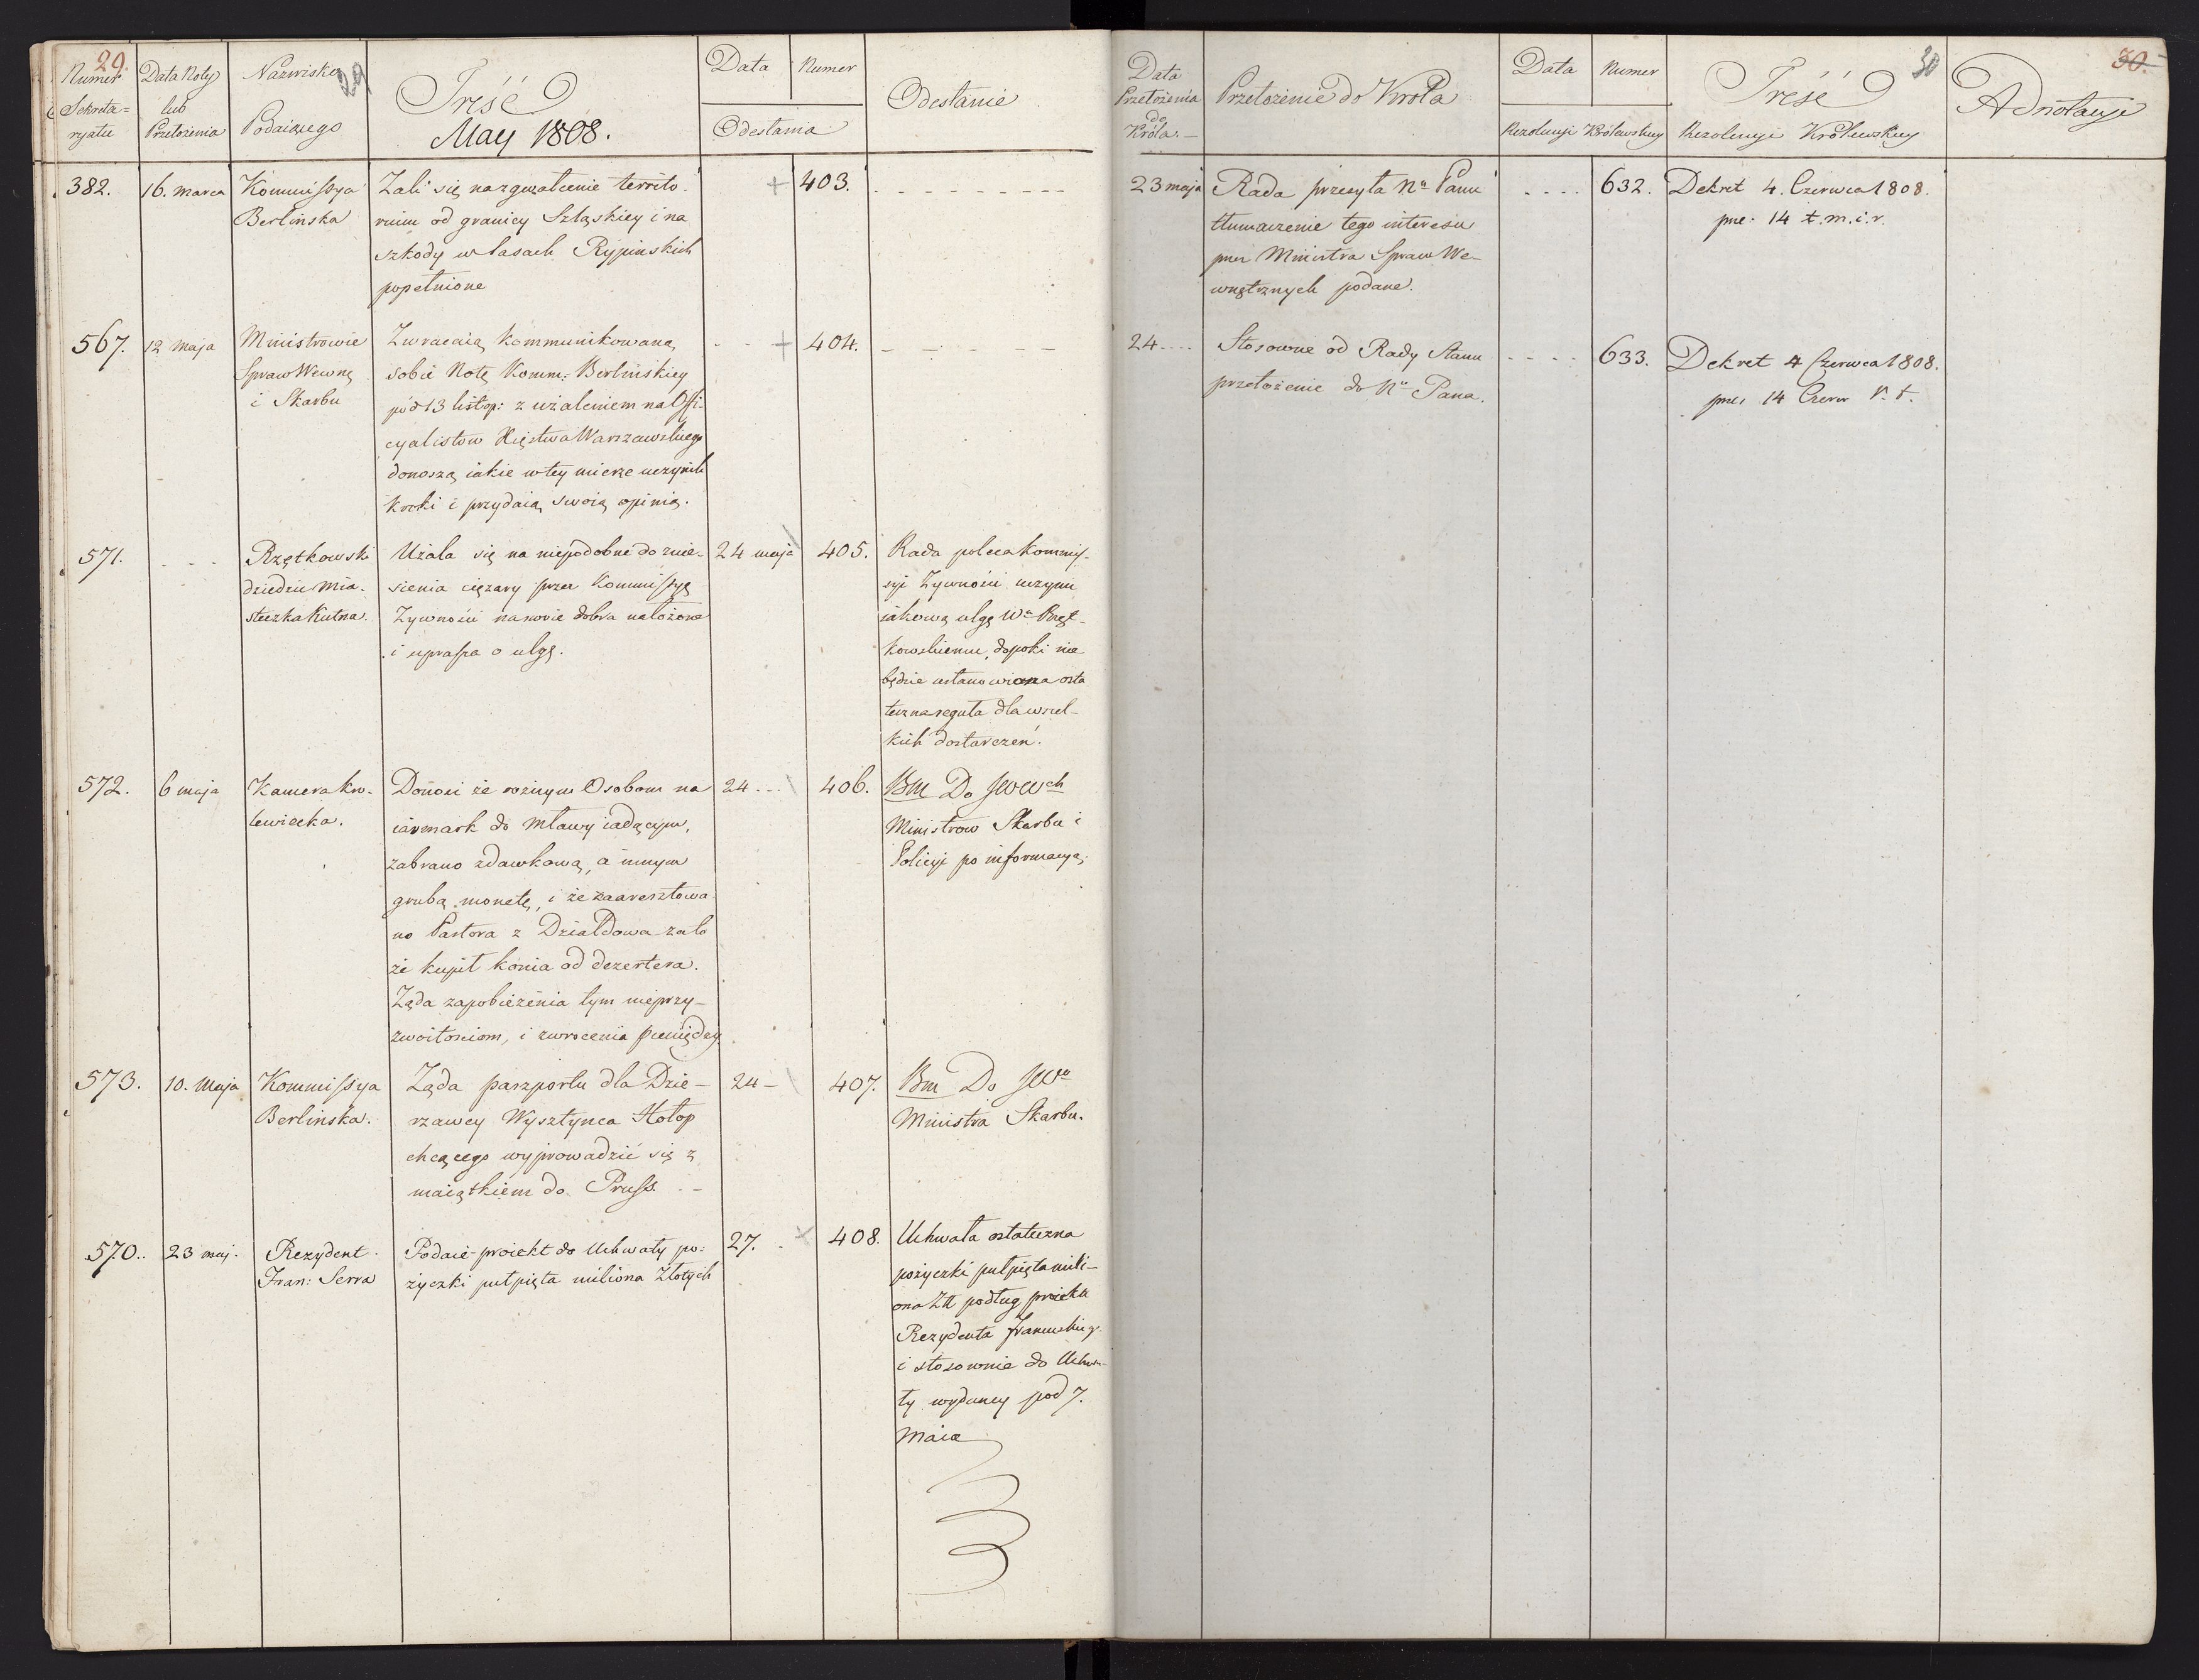 29.
29
Numer
Sekreta=
ryatu
Data Noty
lub
Przełożenia
Nazwisko
Podaiącego
Treść
May 1808.
Data
Numer
Odesłania
Odesłanie
382.
16. marca
Kommissya
Berlinska
Żali się na zgwałcenie territo-
rium od granicy Szląskiey i na
szkody w lasach Rypinskich
popełnione
+
403.
567.
12 maja
Ministrowie
Spraw Wewnę
i Skarbu
Zwracaią kommunikowaną
sobie Notę Komm: Berlinskiey
pod 13 listop: z użaleniem na Offi-
cyalistow Xięstwa Warszawskiego
donoszą iakie w tey mierze uczynili
kroki i przydaią swoią opinią.
+
404.
571.
Rzętkowski
dziedzic mia-
steczka Kutna.
Użala się na niepodobne do znie-
sienia ciężary przez Kommissyę
Żywności na swoie dobra nałożone
i uprasza o ulgę.
24 maja
405.
Rada poleca Kommis-
syi Żywności uczynić
iakową ulgę Wu Rzęt-
kowskiemu, dopoki nie
będzie ustanowiona osta
teczna reguła dla wszel-
kich dostarczeń.
572.
6 maja
Kamera kro-
lewiecka.
Donosi że rożnym Osobom na
iarmark do Mławy iadącym,
zabrano zdawkową, a innym
grubą monetę, i że zaaresztowa
no Pastora z Działdowa za to
że kupił konia od dezertera.
Żąda zapobieżenia tym nieprzy-
zwoitosciom, i zwrocenia pieniędzy.
24
406.
Bm Do JWWch
Ministrow Skarbu i
Policyi po informacyą.
573.
10. Maja
Kommissya
Berlinska.
Żąda paszportu dla Dzie-
rzawcy Wysztynca Hotop
chcącego wyprowadzić się z
maiątkiem do Pruss.
24
407.
Bm Do JWo
Ministra Skarbu.
570.
23 maj.
Rezydent
Fran: Serra
Podaie proiekt do Uchwały po-
życzki pułpięta miliona Złotych
27.
+
408.
Uchwała ostateczna
pożyczki pułpięta mili-
ona Zlł podług proiektu
Rezydenta francuskiego
i stosownie do Uchwa-
ły wydaney pod 7.
Maia
30
30.
Data
Przełożenia
do
Króla.
Przełożenie do Krola
Data
Numer
Rezolucyi Królewskiey
Treść
Rezolucyi Królewskiey
Adnotacye
23 maja
Rada przesyła Nu Panu
tłumaczenie tego interesu
przez Ministra Spraw We-
wnętrznych podane.
632.
Dekret 4. Czerwca 1808.
prze. 14 t.m.i.r.
24
Stosowne od Rady Stanu
przełożenie do No Pana.
633.
Dekret 4 Czerwca 1808.
prze. 14 Czerw r. t.